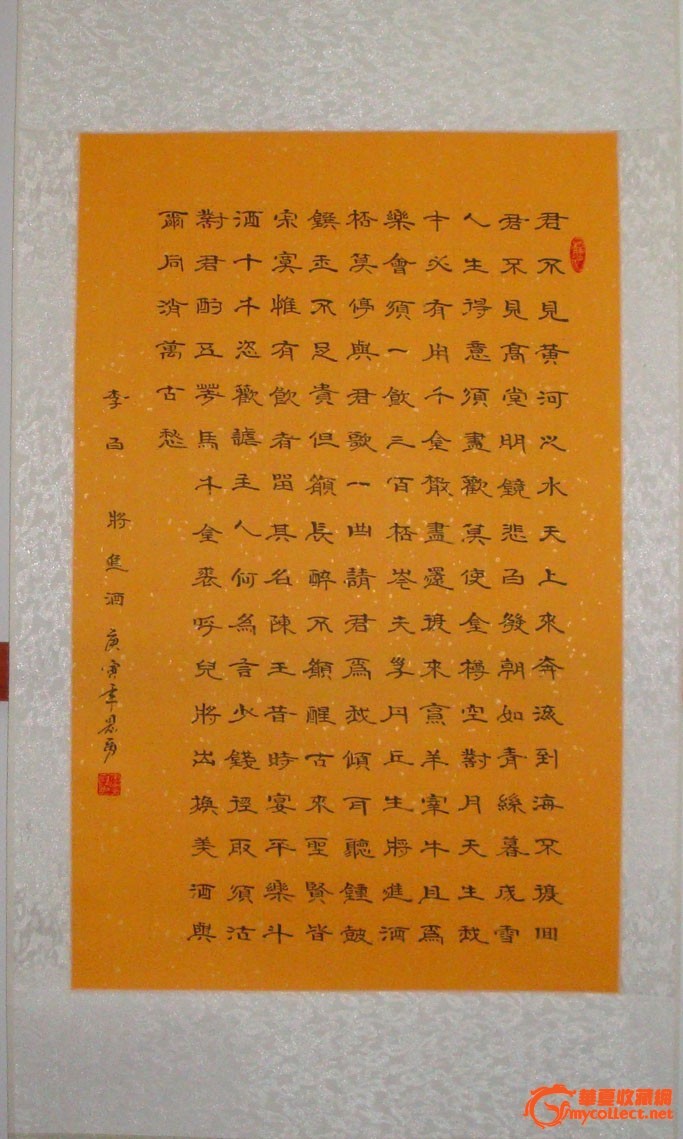 君不見黃河之水天上來奔流到海不復回
君不見高堂明鏡悲白髮朝如青絲暮成雪
人生得意須盡歡莫使金樽空對月天生我
才必有用千金散盡還復來烹羊宰牛且為
樂會須一飲三百杯岑夫子丹丘生將進酒
杯莫停與君歌一曲請君為我傾耳聽鍾鼓
饌玉不足貴但願長醉不願醒古來聖賢皆
寂寞惟有飲者留其名陳王昔時宴平樂斗
酒十千恣歡謔主人何為言少錢徑取須沽
對君酌五花馬千金裘呼兒將出換美酒與
爾同消萬古愁
李白 將進酒 庚寅年
華夏收藏網
mycollect.net